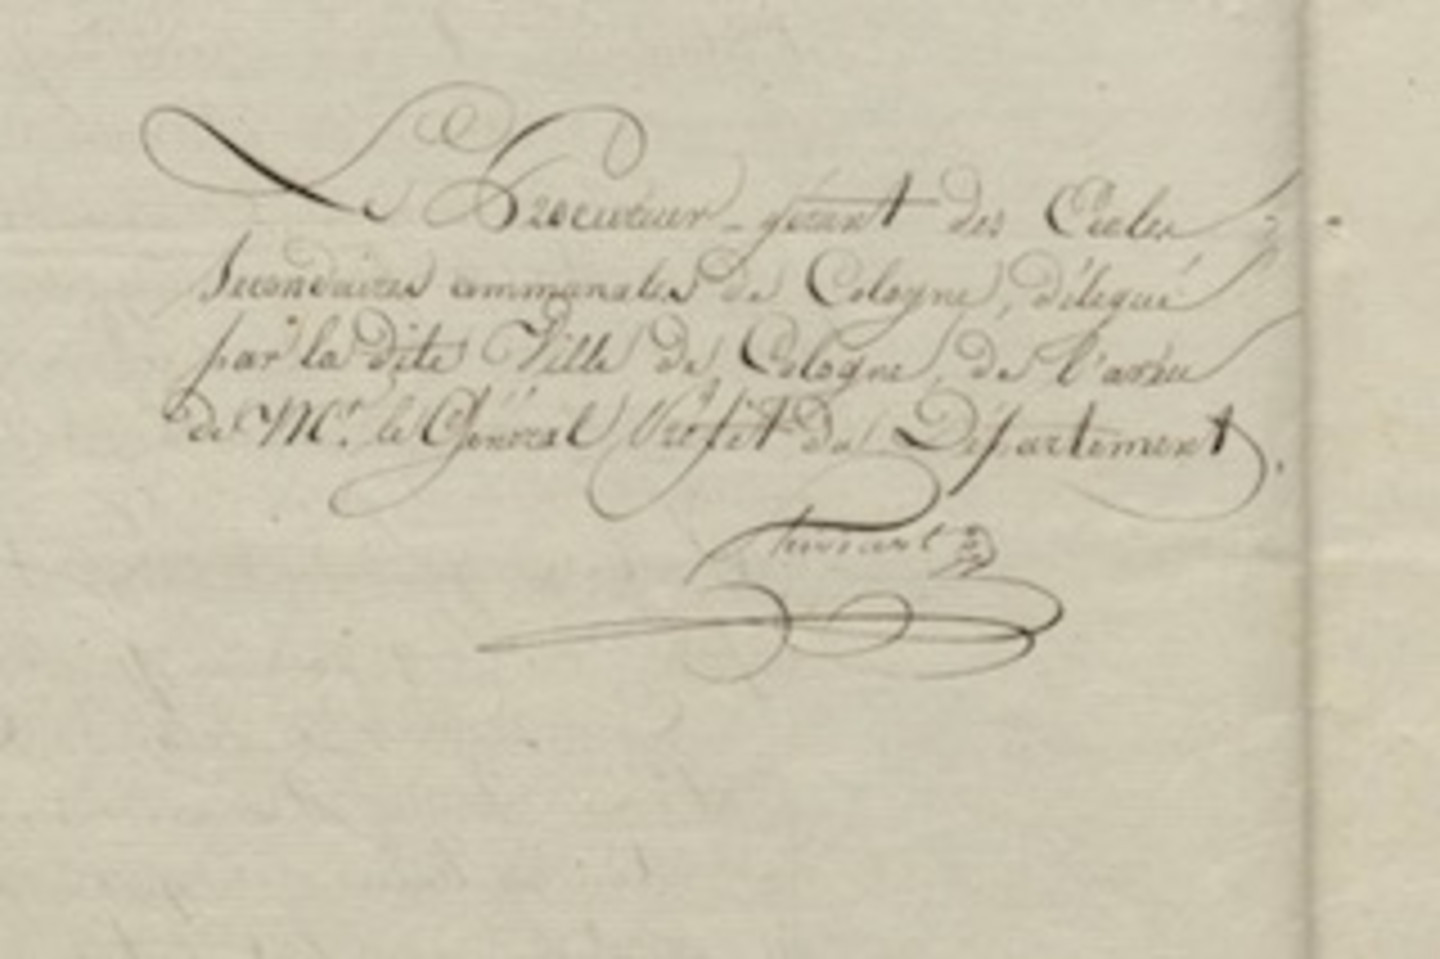 Le Procureur-gérant des Ecoles
Secondaires communales de Cologne, délégué
par la dite Ville de Cologne, de l'aveu
de Mr. le Général Préfet du Département.